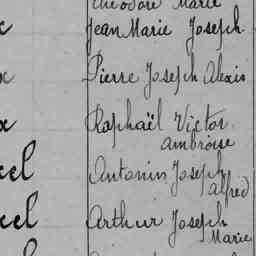 Théodore Marie
Jean Marie Joseph
Pierre Joseph Alexis
Raphaël Victor
Ambroise
Antonin Joseph
Alfred
Arthur Joseph
Marie